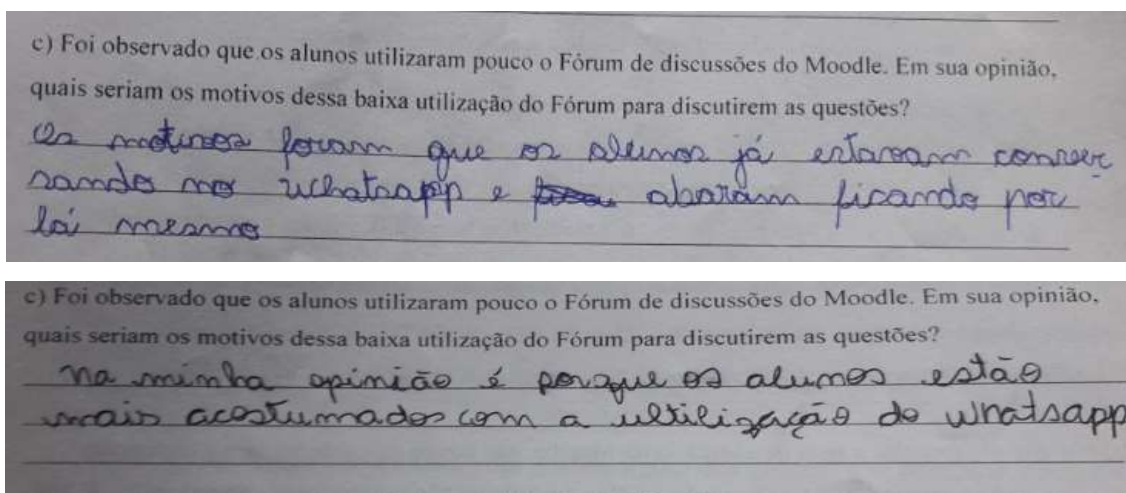 c) Foi observado que os alunos utilizaram pouco o Fórum de discussões do Moodle. Em sua opinião,
quais seriam os motivos dessa baixa utilização do Fórum para discutirem as questões?
Os motivos foram que os alunos já estavam conver
sando no whatsapp e abaram ficando por
lá mesmo
c) Foi observado que os alunos utilizaram pouco o Fórum de discussões do Moodle. Em sua opinião,
quais seriam os motivos dessa baixa utilização do Fórum para discutirem as questões?
na minha opinião é porque os alunos estão
mais acostumados com a ultilização do whatsapp